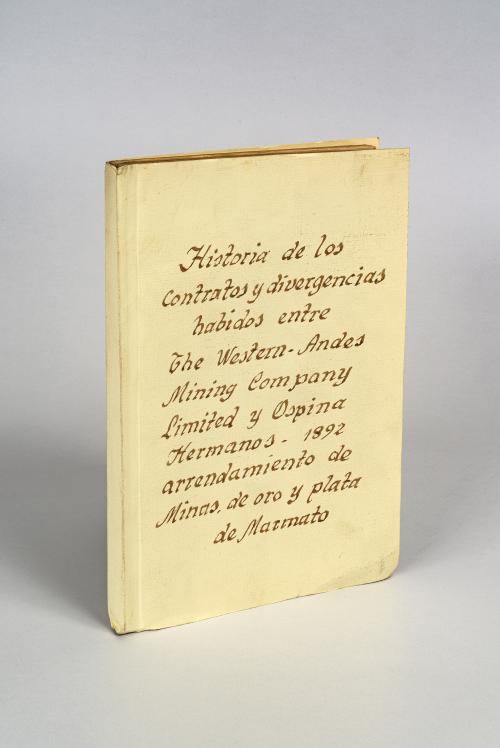 Historia de los
contratos y divergencias
habidos entre
The Western-Andes
Mining Company
Limited y Ospina
Hermanos - 1892
arrendamiento de
Minas, de oro y plata
de Marmato